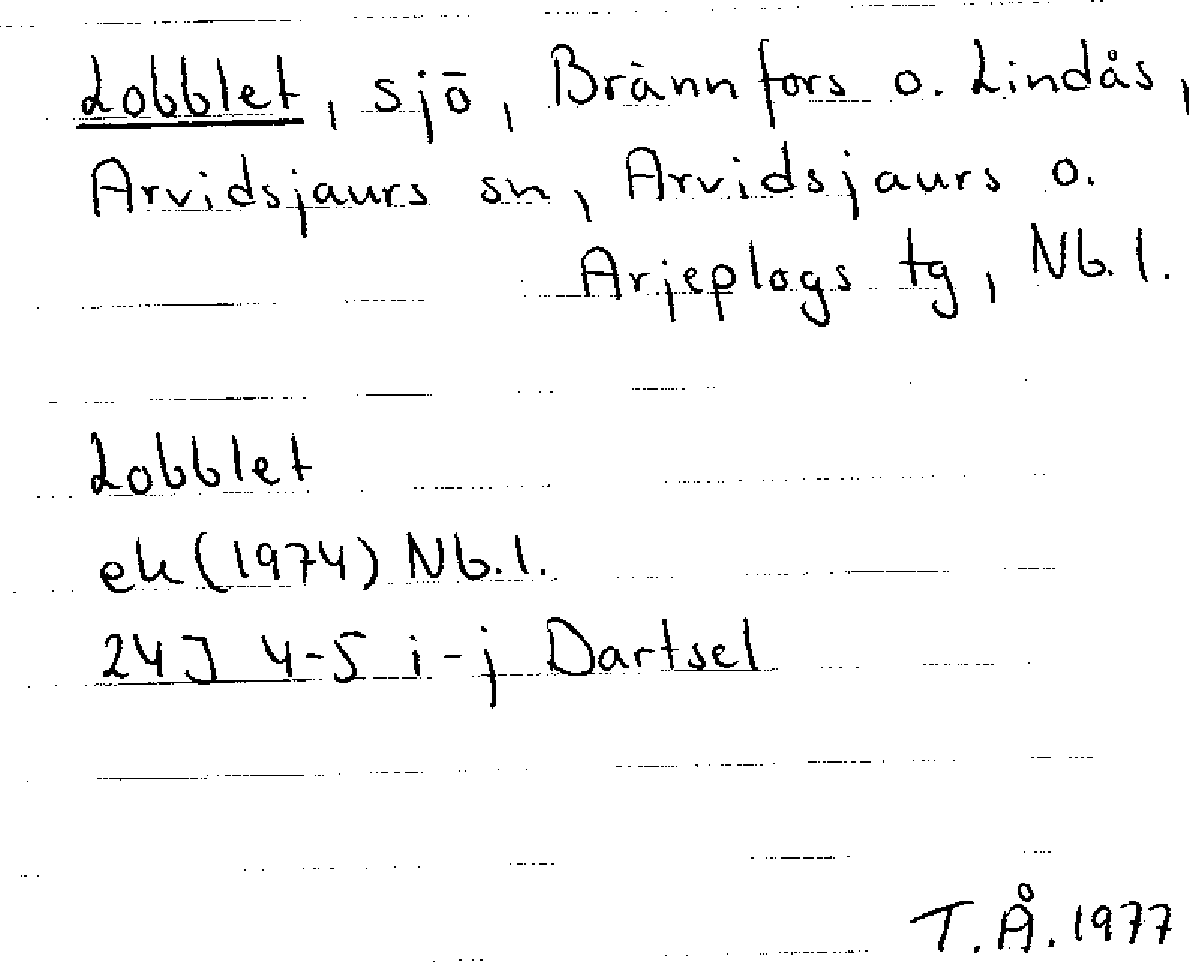 Lobblet, sjö, Brännfors o. Lindås,
Arvidsjaurs sn, Arvidsjaurs o.
Arjeplogs tg, Nb.l.
Lobblet
ek (1974) Nb.l.
24J 4-5 i-j Dartsel
T.Å. 1977